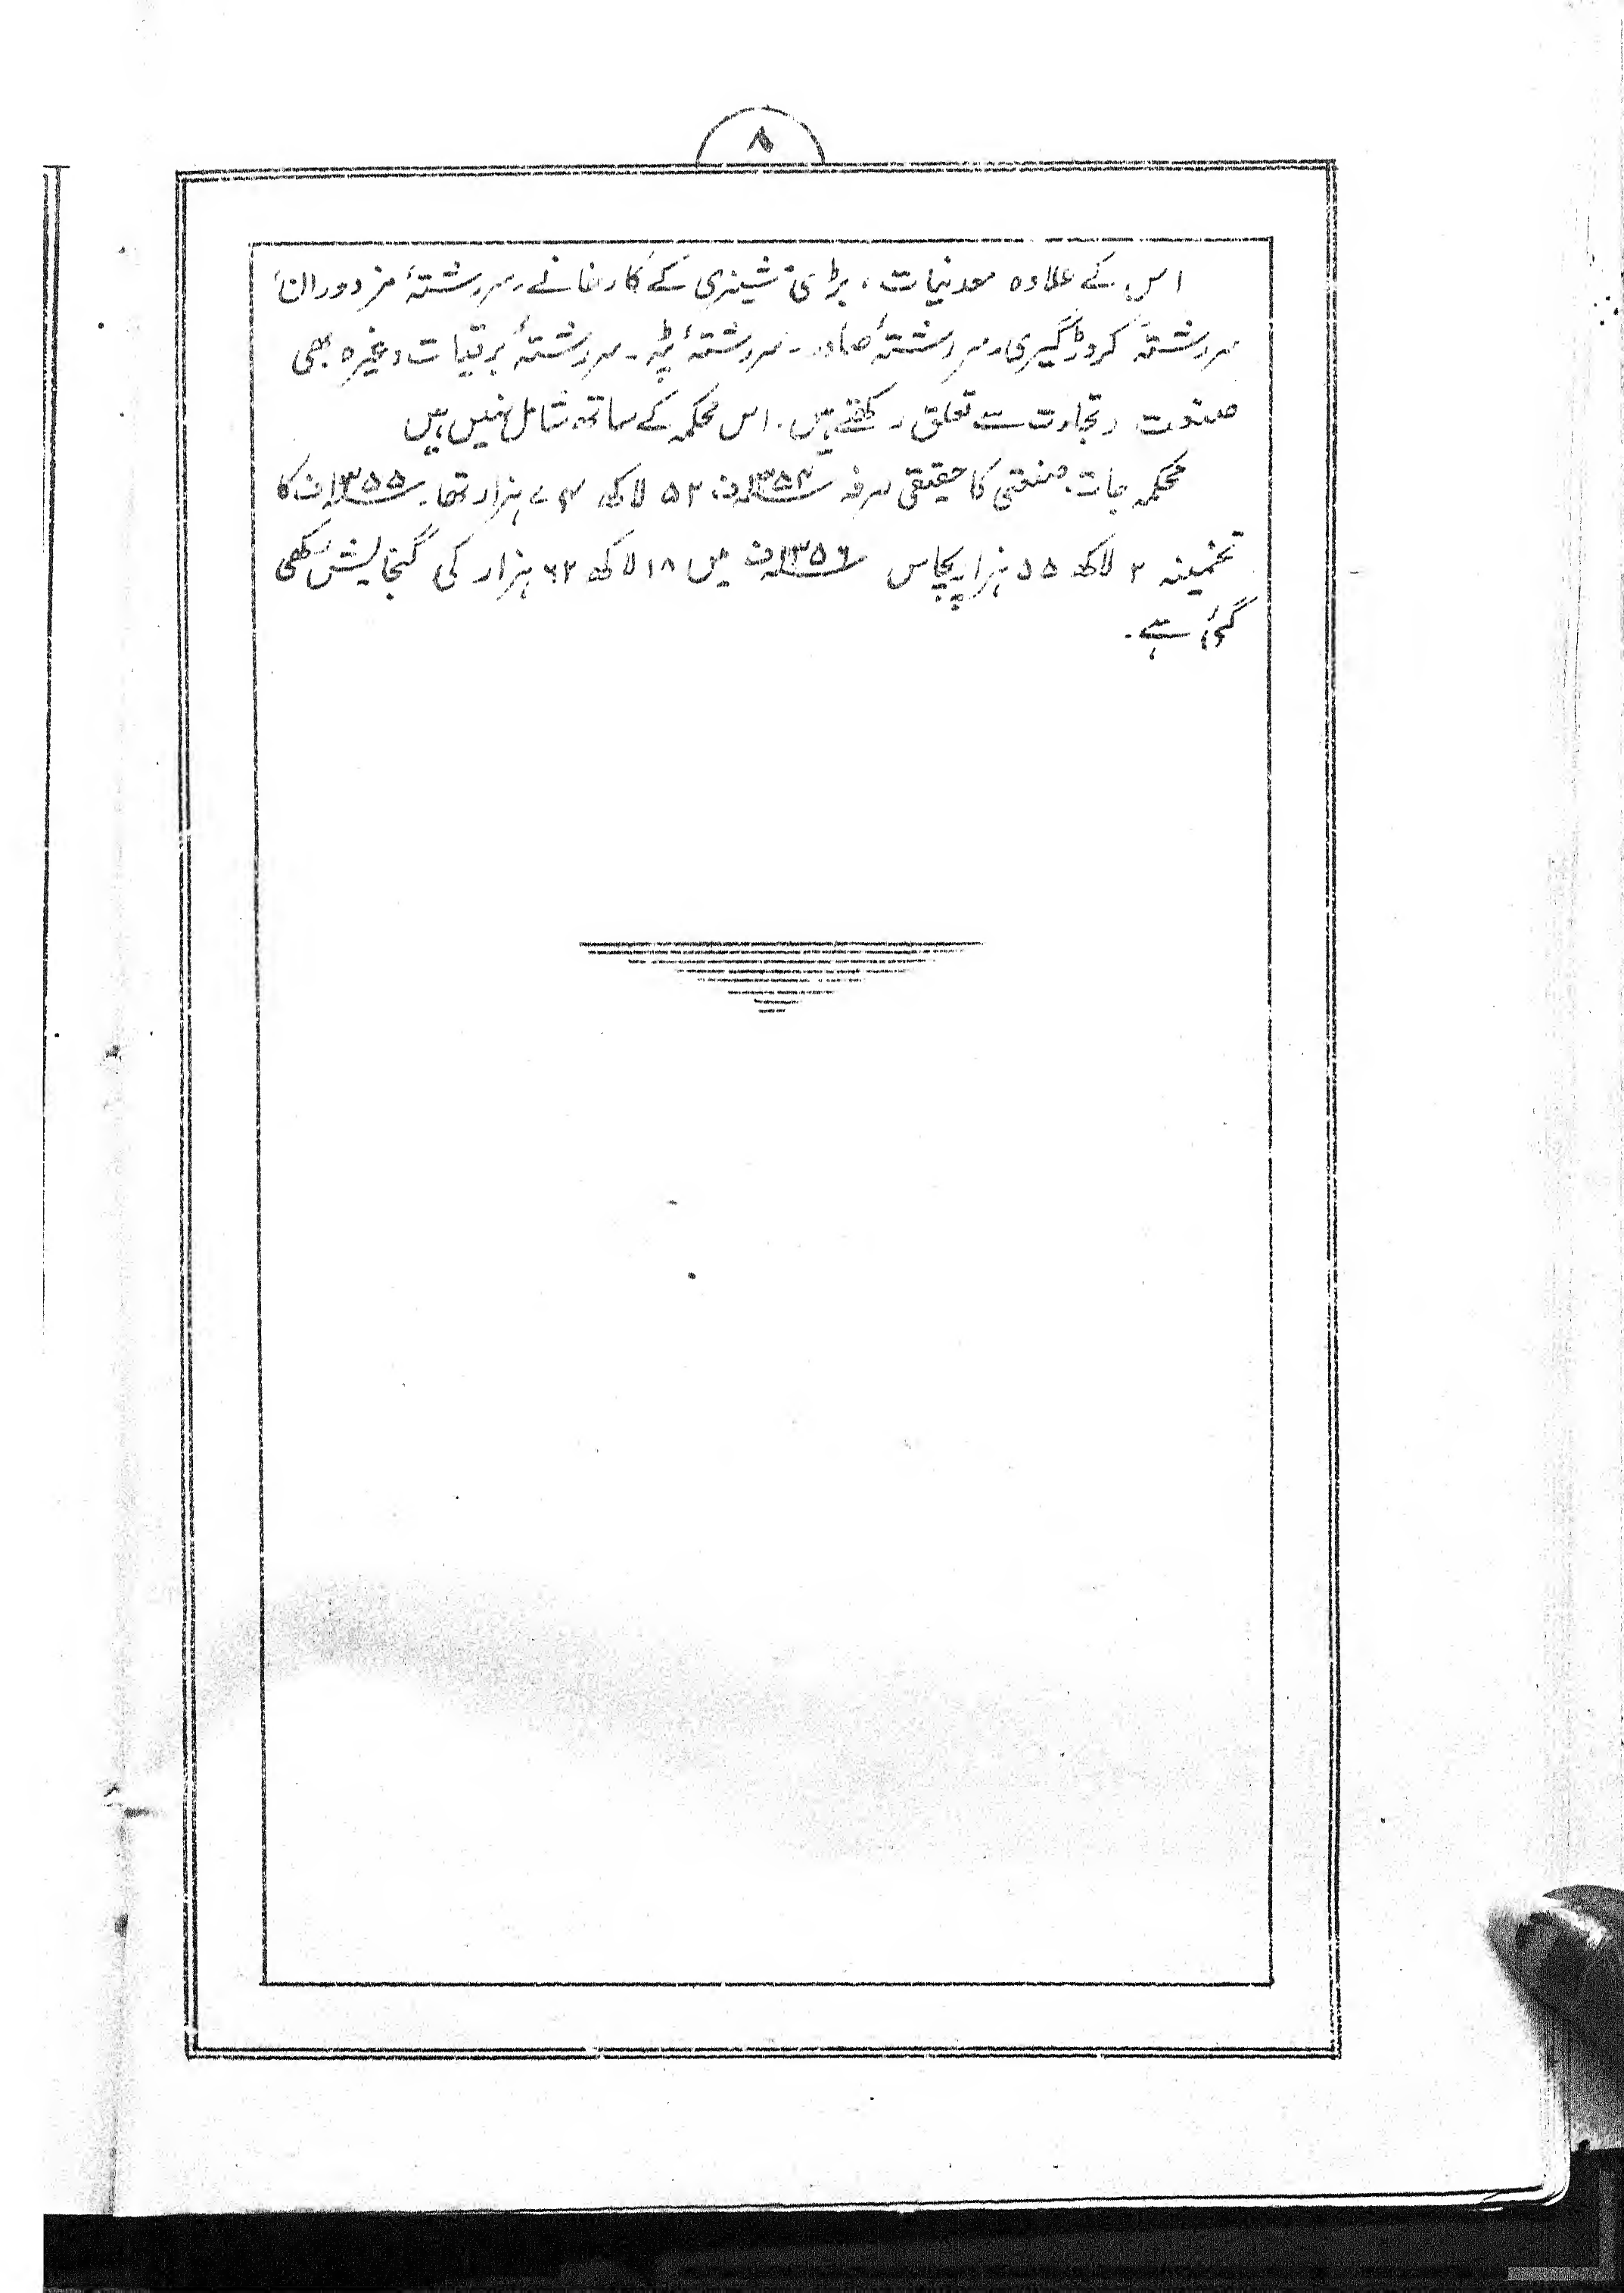 ۸
اس کے علاوہ معدنیات، بڑی مشینری کے کارخانے، سررشتۂ مزدوران،
سررشتۂ کروڑگیری، سررشتۂ صادر۔ سررشتۂ ٹپہ۔ سررشتۂ برقیات وغیرہ بھی
صنعت و تجارت سے تعلق رکھتے ہیں۔ اس محکمہ کے ساتھ شامل نہیں ہیں
محکمہ جات صنعتی کا حقیقی صرفہ ۱۳۵۴ف ۵۲ لاکھ ۷۴ ہزار تھا۔ ۱۳۵۵ف کا
تخمینہ ۲ لاکھ ۵۵ ہزار پچاس ۱۳۵۶ف میں ۱۸ لاکھ ۶۲ ہزار کی گنجایش رکھی
گئی ہے۔